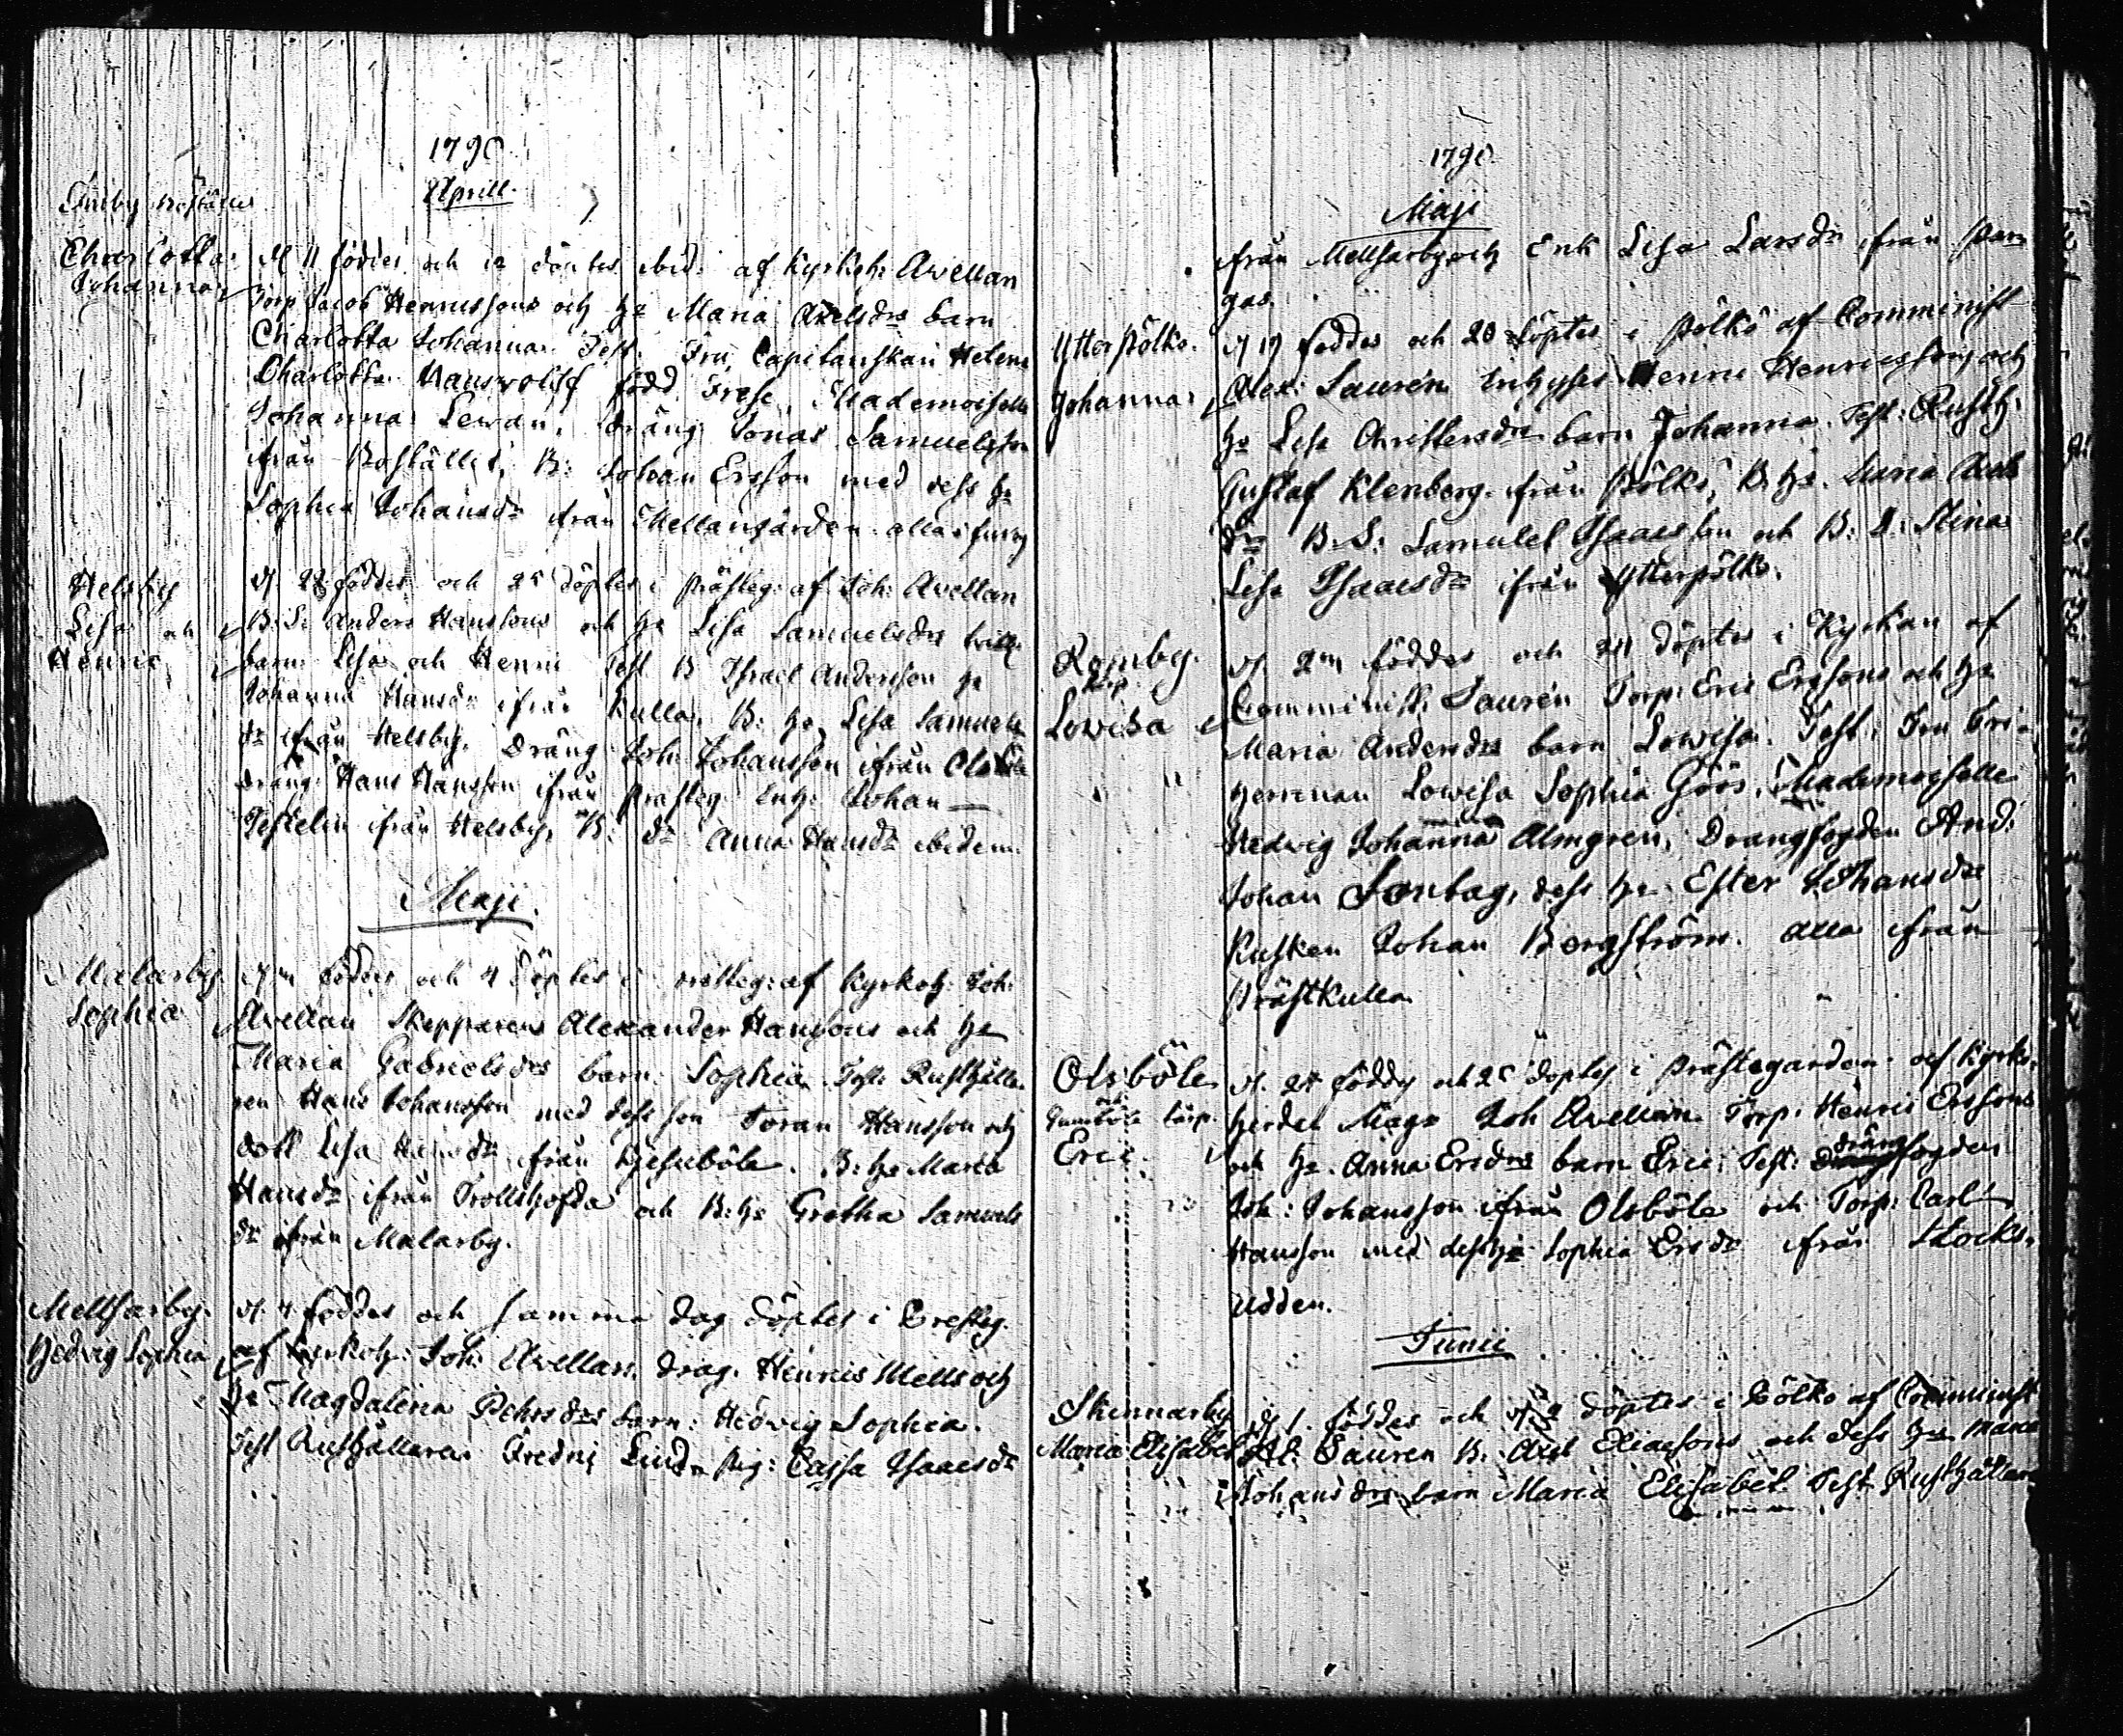 1790
Aprill
Charlotta
Johanna
d 11 föddes och 12 döptes ibid: af Kyrkoh: Avellan
Torp Jacob Henricssons och h: Maria Axelsdrs barn
Charlotta Johanna. Test: Fru Capitanskan Helena
Charlotta född Frese, Mademoiselle
Johanna Lewan, Dräng Jonas Samuelsson
ifrån Bostället, B: Johan Ersson med dess h:
Sophia Johansdr ifrån Mellangården alla i
Helsby
Lisa och
Henric
d 22 föddes och 25 döptes i Prästeg: af Joh: Avellan
B: S: Anders Hanssons och h: Lisa Samuelsdrs
barn Lisa och Henric Test B Israel Andersson h:
Johanna Hansdr ifrån Kulla, B: h: Lisa Samuels
dr ifrån Helsby, Dräng Joh: Johansson ifrån Olsböle
dräng Hans Hansson ifrån Prästeg: Johan
ifrån Helsby, B: dr Anna Hansdr ibidem.
Maji.
Malarby
Sophia
föddes och 4 döptes i af Kyrkoh: Joh:
Avellan Skepparens Alexander Hanssons och h:
Maria Gabrielsdrs barn Sophia. Test: Rusthålla
ren Hans Johansson med dess son Joran Hansson och
dott Lisa Hansdr ifrån B: h: Maria
Hansdr ifrån Trollshofda och B: h: Gretha Samuels
dr ifrån Malarby.
Mellsarby.
Hedvig Sophia
d. 4 föddes och samma dag döptes i Presteg.
af Kyrkoh: Joh: Avellan. Drag. Henrics Mells och
h: Magdalena Pehrsdrs barn: Hedvig Sophia.
Test Rusthållaren Fredric Lind, Pig: Cajsa Isaacsdr
1790
Maji
ifrån Mellsarby och Enk Lisa Larsdr ifrån Par
gas.
Ytterpölkö.
Johanna
d 19 föddes och 20 döptes i Pölkö af Comminist
Alex: Saurén Inhyses Henric Henricssons och
h: Lisa Christersdrs barn Johanna. Test: Rusth:
Gustaf Klenberg ifrån Pölkö, B. h: Maria Axels
dr B. S: Samuel Isaacsson och B: D: Stina
Lisa Isaacsdr ifrån Ytterpölkö.
Romby.
torp
Lowisa
föddes och 24 döptes i Kyrkan af
Comminist: Saurén Torp: Eric Erssons och h:
Maria Andersdrs barn Lowisa. Test: Fru Fri-
herrinnan Lowisa Sophia Göös, Mademoyselle
Hedvig Johanna Almgren, Drängfogden And:
Johan Sontag, dess h: Ester Johansdr
Kusken Johan Bergström. alla ifrån
Prästkulla
Olsböle
och
torp.
Eric
d. 24 föddes och 25 döptes i Prästegården af Kyrko-
herden Mag: Joh Avellan Torp: Henric Erssons
och h: Anna Ersdrs barn Eric: Test: drängfogden
Joh: Johansson ifrån Olsböle och Torp: Carl
Hansson med dess h: Sophia Ersdr ifrån Stocks-
udden.
Junii
Skinnarby
Maria Elisabet
d 1. föddes och döptes i Pölkö af Comminist
Al: Sauren B: Axel Eliaesons och dess h: Maria
Johansdrs barn Maria Elisabet Test Rusthållare